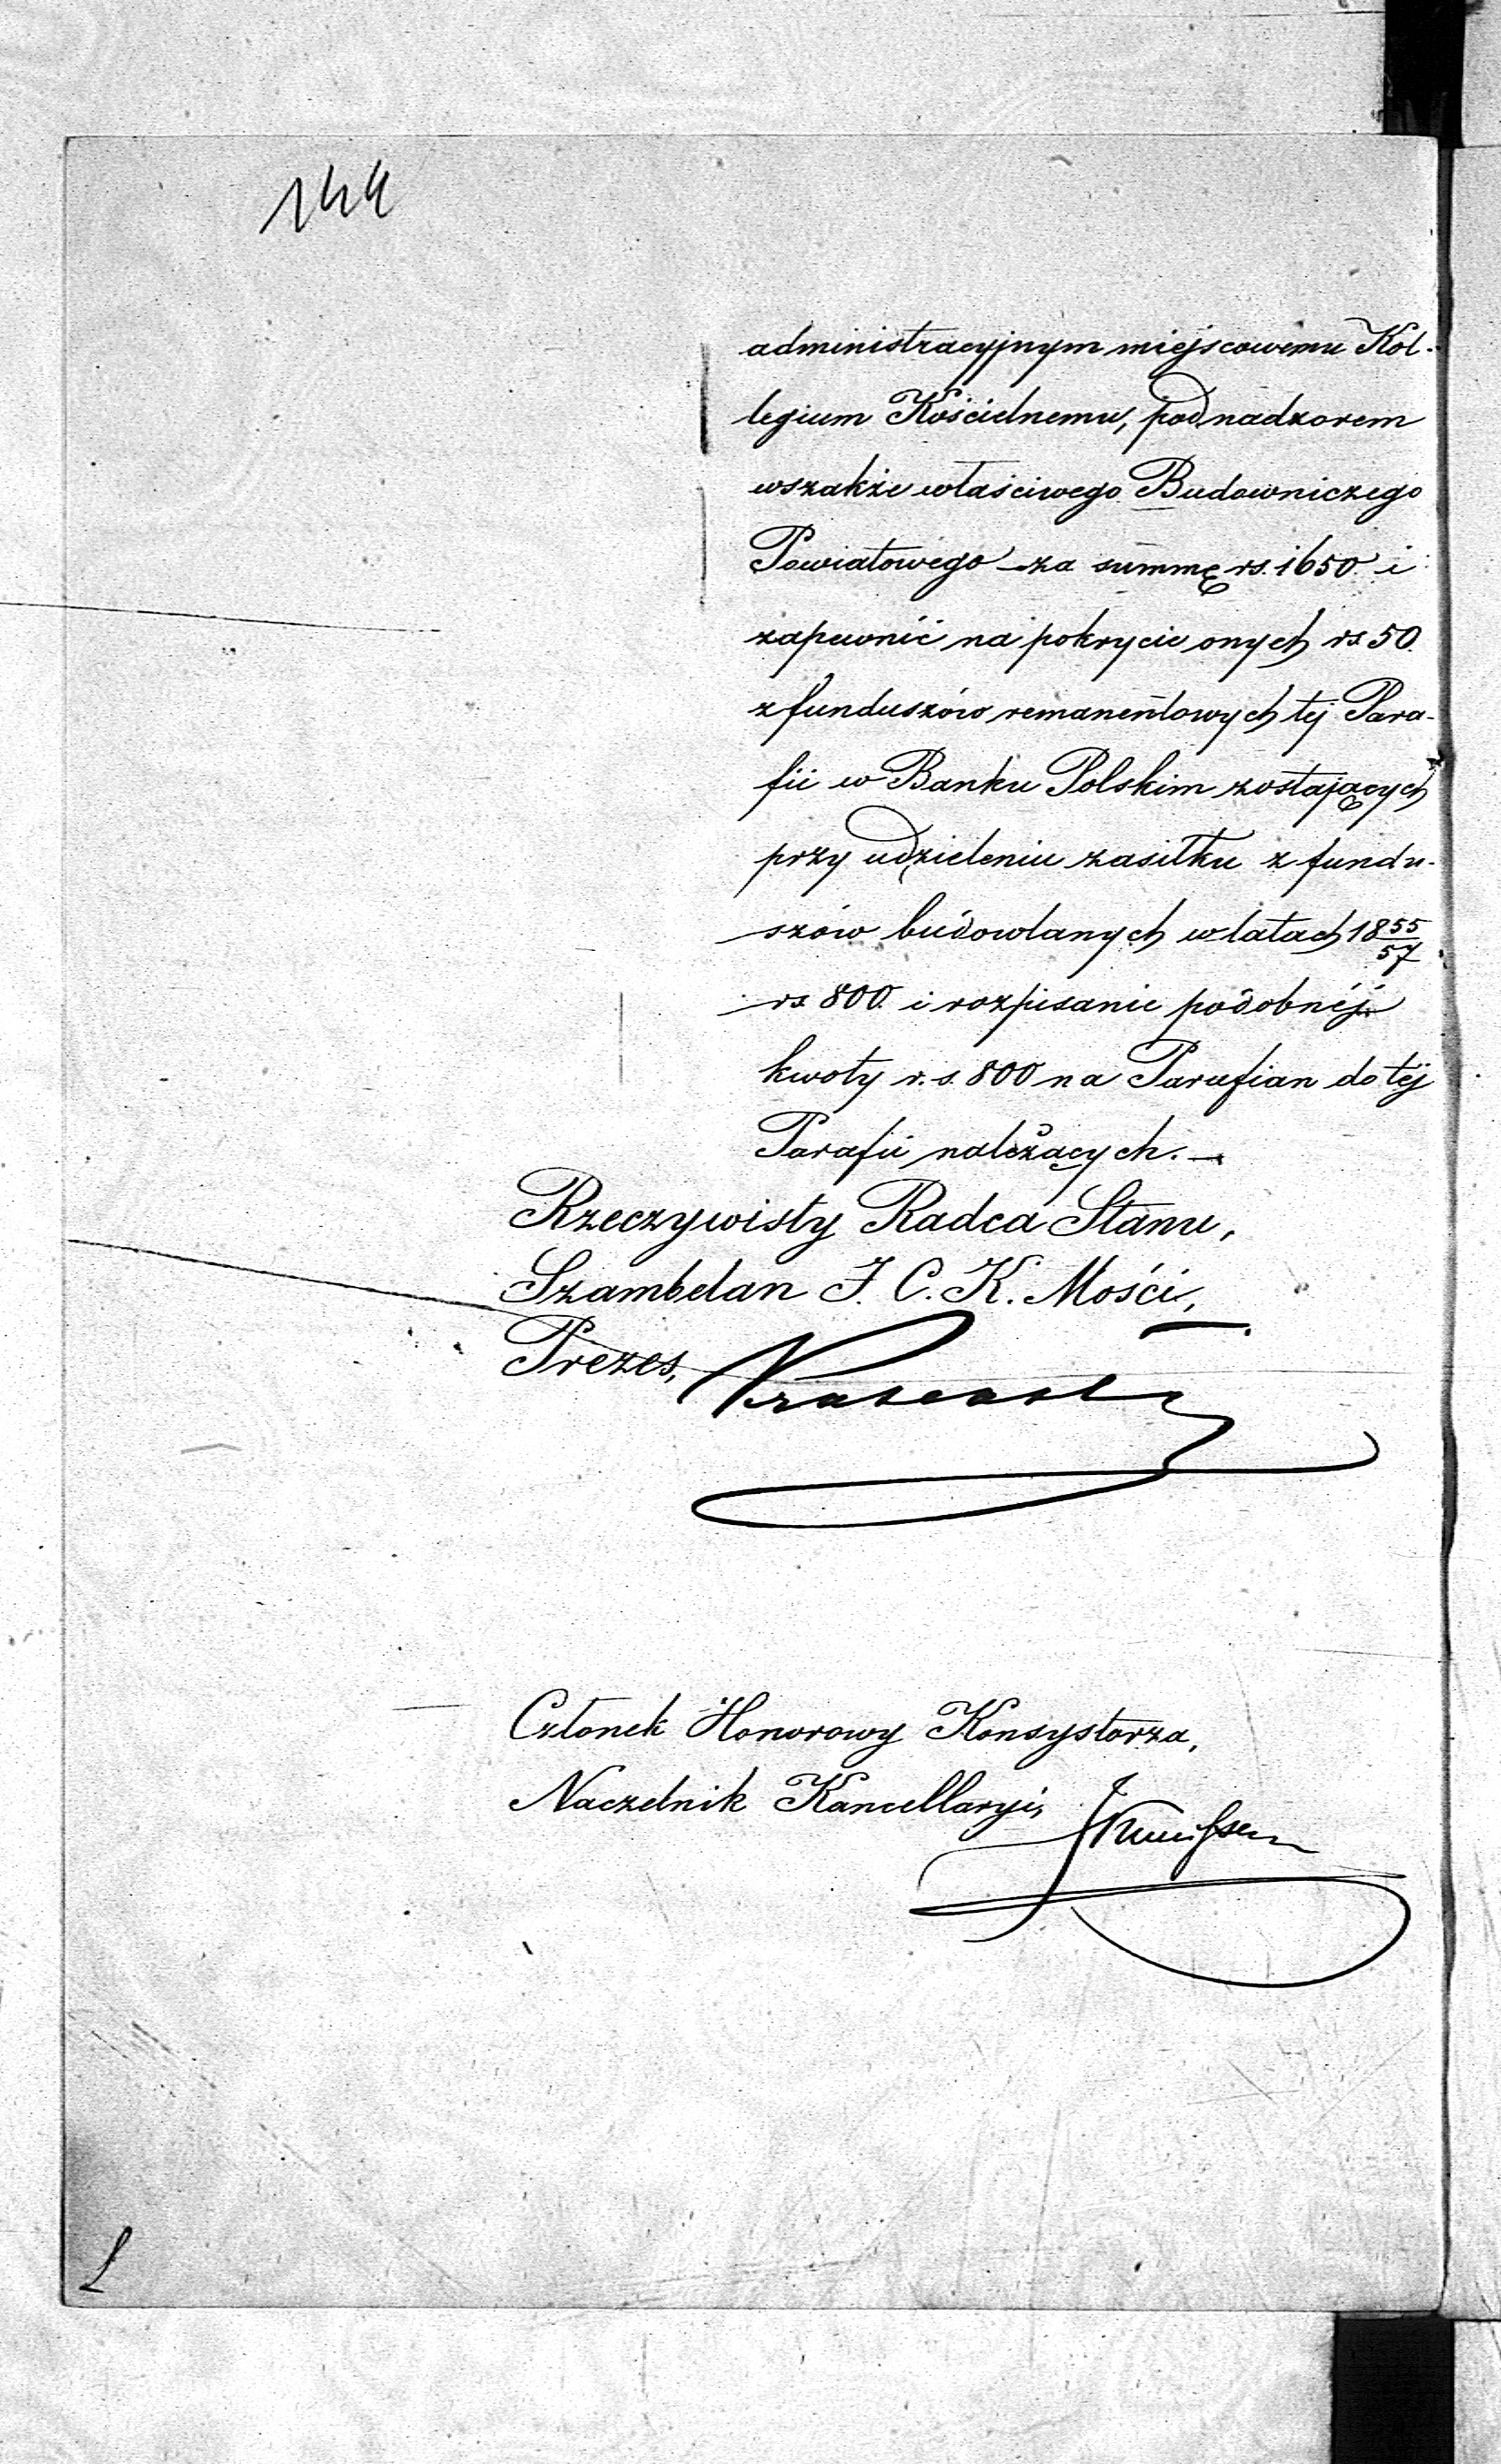 144
administracyjnym miejscowemu Kol-
legium Kościelnemu, pod nadzorem
wszakże właściwego Budowniczego
Powiatowego za summę rs. 1650 i
zapewnić na pokrycie onych rs 50.
z funduszów remanentowych tej Para-
fii w Banku Polskim zostających
przy udzieleniu zasiłku z fundu-
szów budowlanych w latach 1855/57
rs 800. i rozpisanie podobnéj
kwoty r. s. 800 na Parafian do téj
Parafii należących. —
Rzeczywisty Radca Stanu,
Szambelan J. C. K. Mości,
Prezes,
Członek Honorowy Konsystorza,
Naczelnik Kancellaryi,